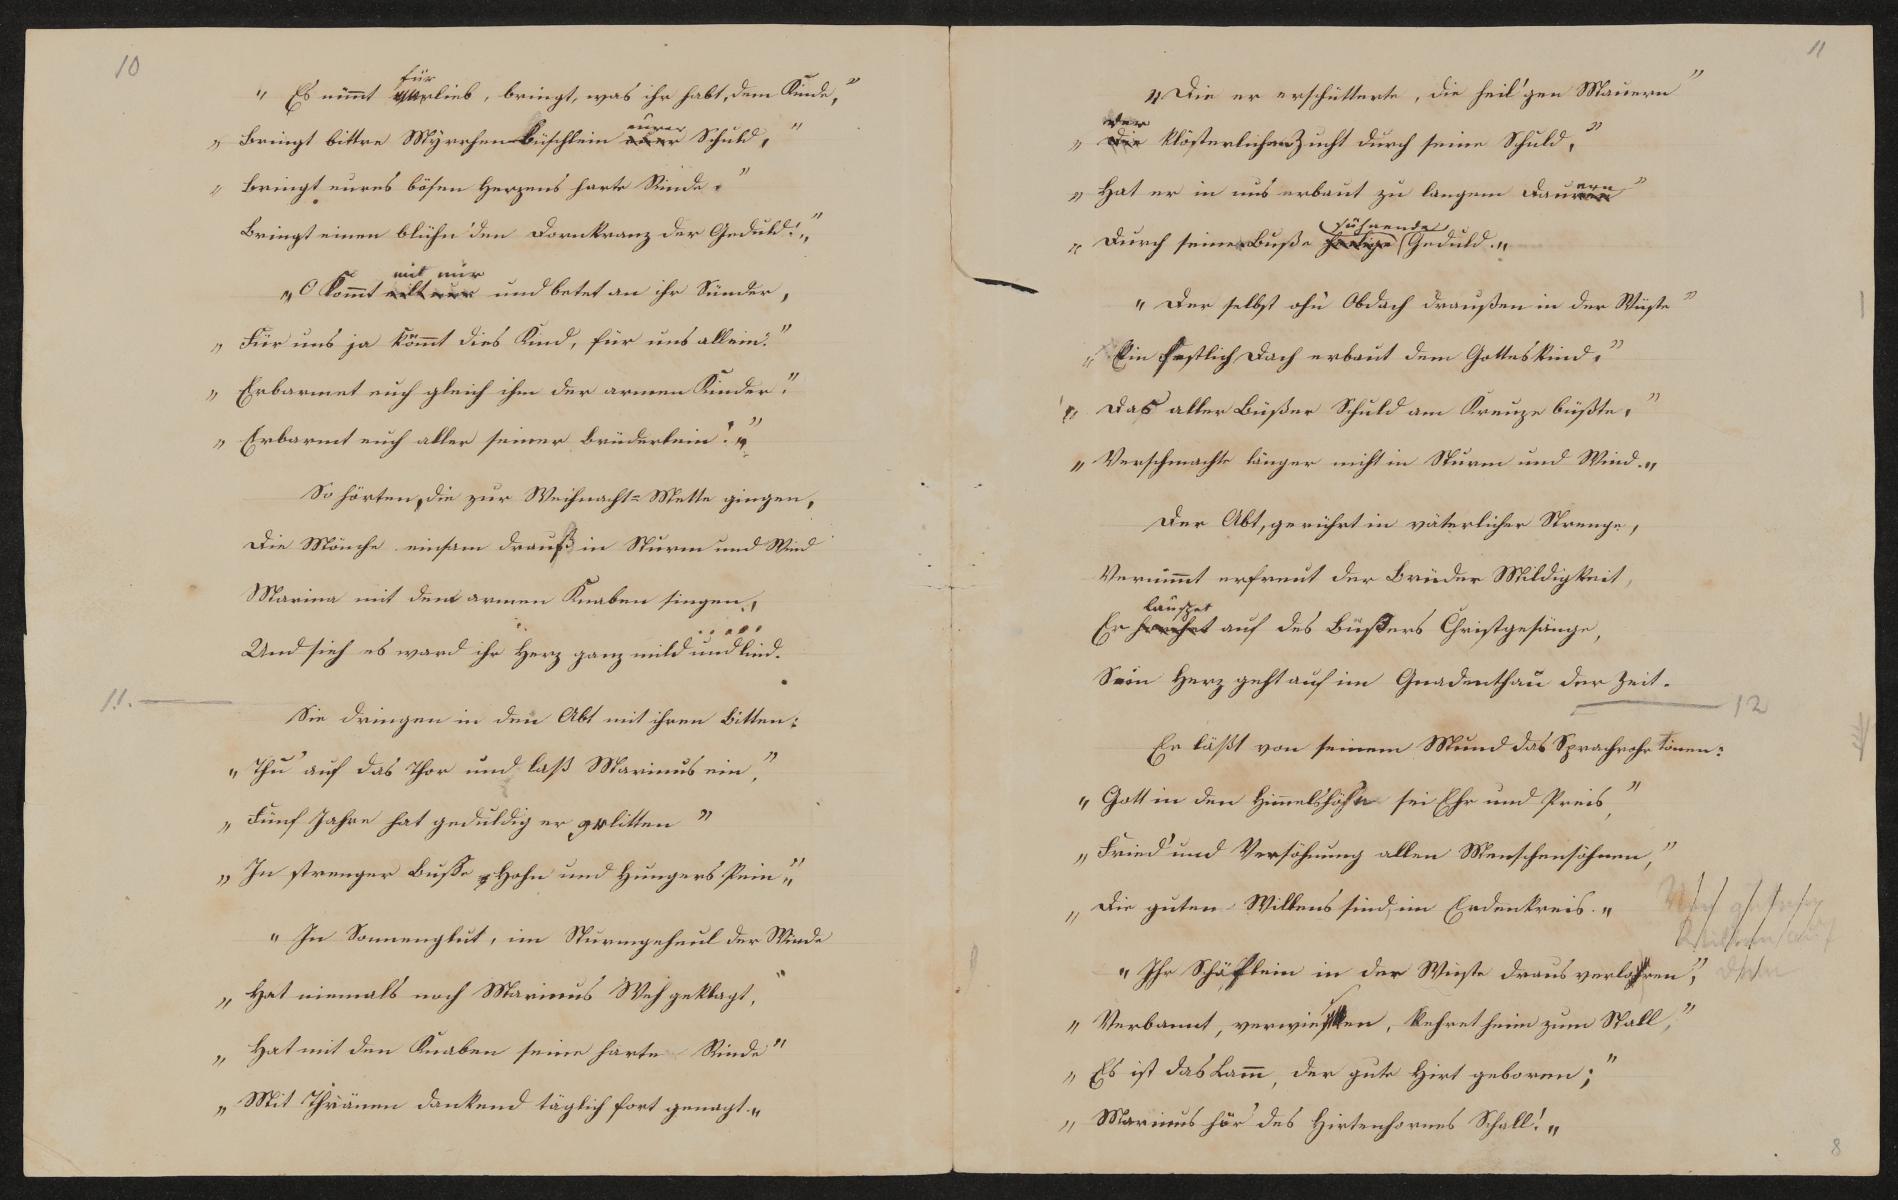 10
für
„ Es nimmt verlieb, bringt, was ihr habt, dem Kinde,"
eurer
„ Bringt bittre Myrrhen-Büschlein eurer Schuld,"
„ Bringt eures bösen Herzens harte Rinde,"
Bringt einen blühn'den Dornkranz der Geduld!„"
mit mir
„O kommt und betet an ihr Sünder,
„ Für uns ja kömmt dies Kind, für uns allein."
„ Erbarmet euch gleich ihm der armen Kinder."
„ Erbarmt euch aller seiner Brüderlein!„"
So hörten, die zur Weihnacht-Mette gingen,
Die Mönche einsam drauß in Sturm und Wind
Marina mit dem armen Knaben singen,
Und sieh es ward ihr Herz ganz mild und lind.
11.
Sie dringen in den Abt mit ihren Bitten:
„Thu' auf das Thor und laß Marinus ein,"
„ Fünf Jahre hat geduldig er gelitten "
„ In strenger Busse Hohn und Hungers Pein"„
„ In Sonnenglut, im Sturmgeheul der Winde
„ Hat niemals noch Marinus Weh geklagt,"
„ Hat mit den Knaben seine harte Rinde"
„ Mit Thränen dankend täglich fort genagt.„
11
„Die er erschütterte, die heil'gen Mauern"
der
„ Die klösterlichen Zucht durch seine Schuld,"
„ Hat er in uns erbaut zu langem Dauern"
sühnende
„ Durch seine Buße heilige Geduld.„
„ Der selbst ohn' Obdach draußen in der Wüste"
„ Ein festlich Dach erbaut dem Gotteskind,"
„ Das aller Büßer Schuld am Kreuze büßte,"
„ Verschmachte länger nicht in Sturm und Wind.„
Der Abt, gerührt in väterlicher Strenge,
Vernimmt erfreut der Brüder Mildigkeit,
lauschet
Er horchet auf des Büßers Christgesänge,
Sein Herz geht auf im Gnadenthau der Zeit.
12
Er läßt von seinem Mund das Sprachrohr tönen:
„ Gott in den Himmelshöhn sei Ehr und Preis,"
„ Fried' und Versöhnung allen Menschensöhnen,"
„ Die guten Willens sind, im Erdenkreis.„
„ Ihr Schäflein in der Wüste draus verloren,"
„ Verbannt, verwiesen, kehret heim zum Stall,"
„ Es ist das Lamm, der gute Hirt geboren;"
„ Marinus hör' des Hirtenhornes Schall!„
8